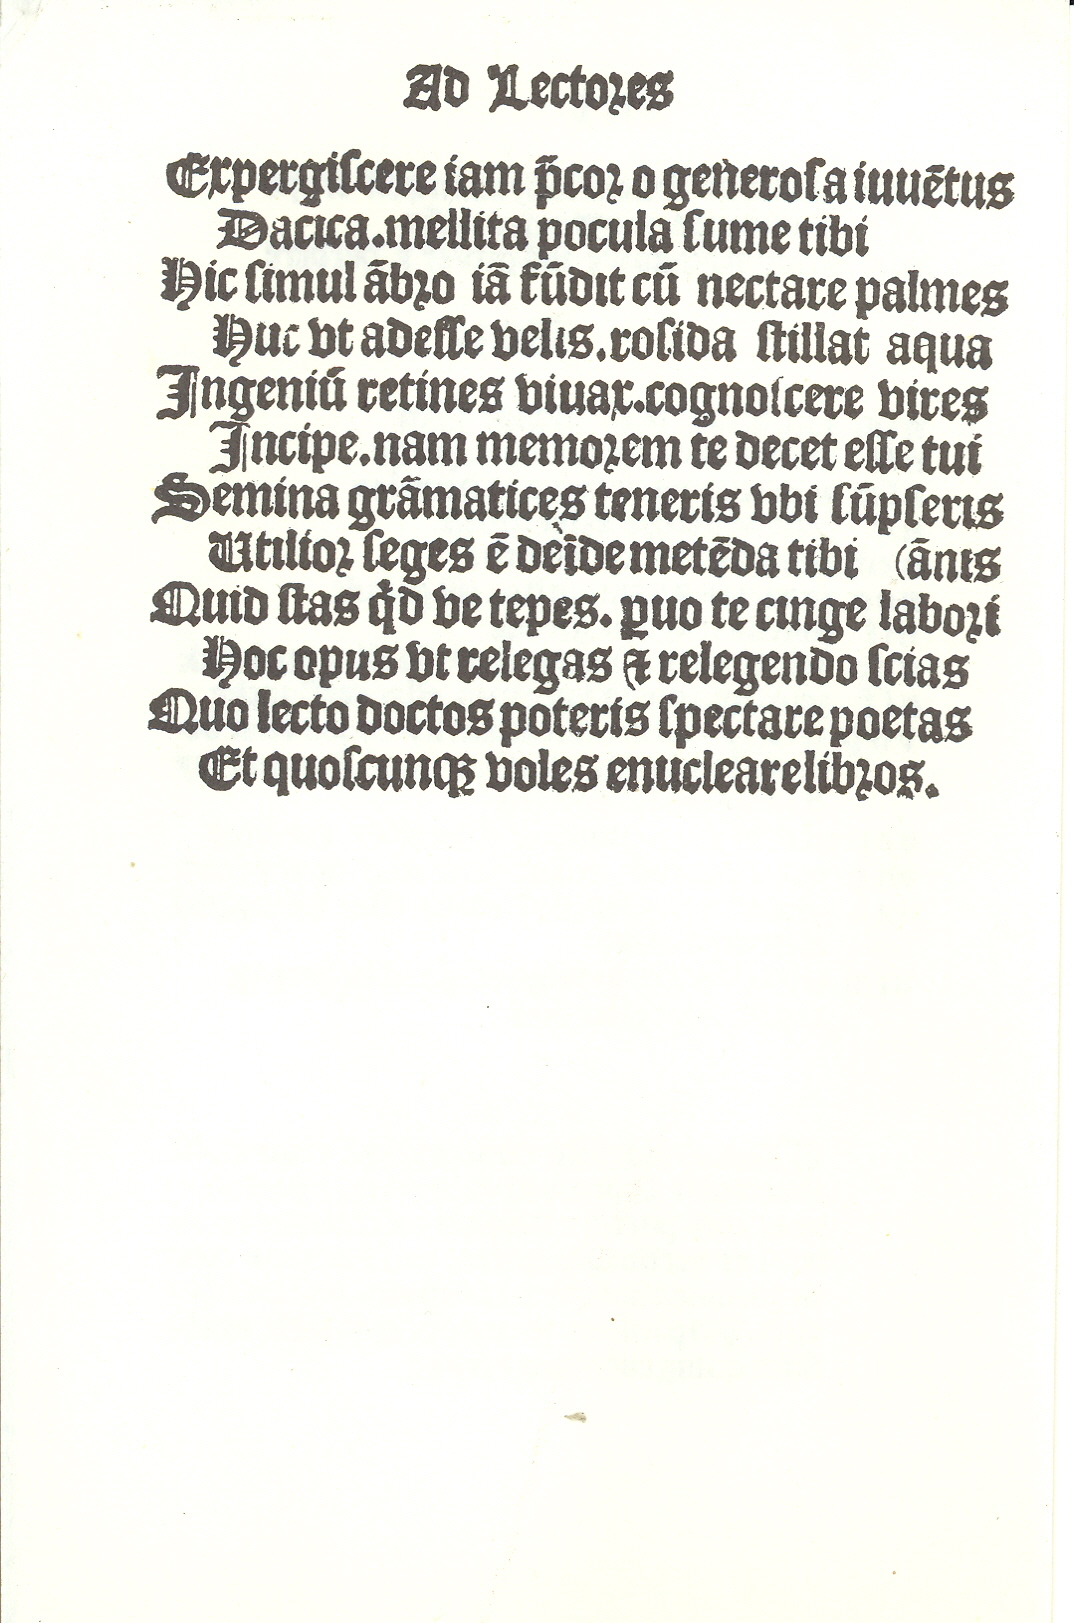 Ad Lectores
Expergiſcere iam p̄cor o generoſa iuuētus
Dacica.mellita pocula ſume tibi
Hic ſimul ābro iā fūdit cū nectare palmes
Huc vt adeſſe velis.roſida ſtillat aqua
Ingeniū retines viuax.cognoſcere vires
Incipe.nam memorem te decet eſſe tui
Semina grāmatices teneris vbi ſūpſeris
Utilior ſeges ē deīde metēda tibi (ānis
Quid ſtas qd ve tepes. ꝓuo te cinge labori
Hoc opus vt relegas ⁊ relegendo ſcias
Quo lecto doctos poteris ſpectare poetas
Et quoſcunqꝫ voles enucleare libros.